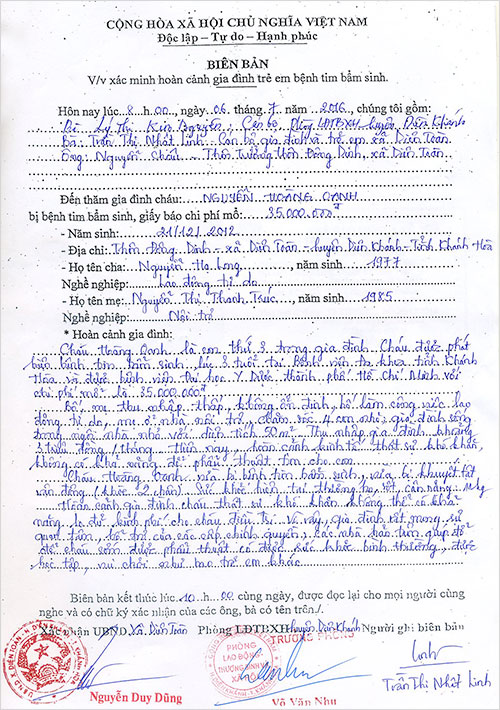 CỘNG HÒA XÃ HỘI CHỦ NGHĨA VIỆT NAM
Độc lập – Tự do – Hạnh phúc
BIÊN BẢN
V/v xác minh hoàn cảnh gia đình trẻ em bệnh tim bẩm sinh.
Hôn nay lúc 8 h 00, ngày 06 tháng 7 năm 2016, chúng tôi gồm:
Bà Lý Thị Kim Nguyên, Cán bộ phòng LĐTBXH huyện Diên Khánh
Bà: Trần Thị Nhật Linh: Cán bộ gia đình và trẻ em xã Diên Toàn
Ông: Nguyễn Châu - Thôn trưởng thôn Đông Dinh, xã Diên Toàn
Đến thăm gia đình cháu: NGUYỄN HOÀNG OANH
bị bệnh tim bẩm sinh, giấy báo chi phí mổ: 35.000.000đ
- Năm sinh: 21/12/2012
- Địa chỉ: Thôn Đông Dinh - xã Diên Toàn - huyện Diên Khánh - Tỉnh Khánh Hòa
- Họ tên cha: Nguyễn Hạ Long, năm sinh 1977
Nghề nghiệp: Lao động tự do
- Họ tên mẹ: Nguyễn Thị Thanh Trúc, năm sinh 1985
Nghề nghiệp: Nội trợ
* Hoàn cảnh gia đình:
Cháu Hoàng Oanh là con thứ 3 trong gia đình. Cháu được phát
hiện bệnh tim bẩm sinh lúc 3 tuổi tại Bệnh viện đa khoa tỉnh Khánh
Hòa và được bệnh viện Đại học Y Dược thành phố Hồ Chí Minh với
chi phí mổ là 35.000.000đ
Bố, mẹ thu nhập thấp, không ổn định, bố làm công việc lao
động tự do, mẹ ở nhà nội trợ, chăm sóc 4 con nhỏ, gia đình sống
trong ngôi nhà nhỏ với diện tích 50m². Thu nhập gia đình khoảng
3 triệu đồng/tháng. Hiện nay, hoàn cảnh kinh tế thật sự khó khăn,
không có khả năng để phẫu thuật tim cho con.
Cháu Hoàng Oanh vừa bị bệnh tim bẩm sinh, vừa bị khuyết tật
vận động (khoèo 2 chân). Sức khỏe hiện tại cân nặng 11kg
Hoàn cảnh gia đình cháu thật sự khó khăn không thể có khả
năng lo đủ kinh phí cho cháu điều trị. Vì vậy, gia đình rất mong sự
quan tâm, hỗ trợ của các cấp chính quyền, các nhà hảo tâm giúp đỡ
để cháu sớm được phẫu thuật, có được sức khỏe bình thường, được
học tập, vui chơi như mọi trẻ em khác.
Biên bản kết thúc lúc 10 h 00 cùng ngày, được đọc lại cho mọi người cùng
nghe và có chữ ký xác nhận của các ông, bà có tên trên./.
Xác nhận UBND xã Diên Toàn Phòng LĐTBXH huyện Diên Khánh Người ghi biên bản
TRƯỞNG PHÒNG
PHÒNG
LAO ĐỘNG
THƯƠNG BINH
XÃ HỘI
Linh
Nguyễn Duy Dũng Võ Văn Nhu Trần Thị Nhật Linh